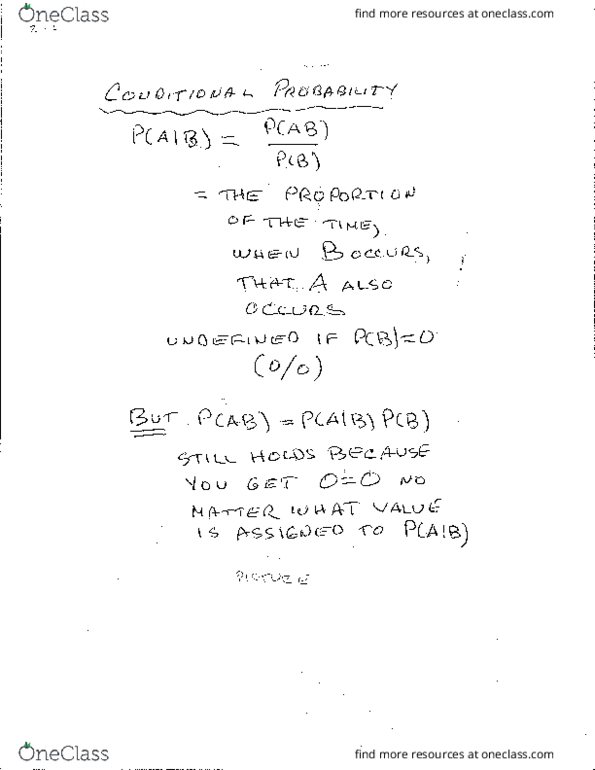 OneClass
find more resources at oneclass.com
CONDITIONAL PROBABILITY
P(A|B) = P(AB)
P(B)
= THE PROPORTION
OF THE TIME,
WHEN B OCCURS,
THAT A ALSO
OCCURS
UNDEFINED IF P(B)=0
(0/0)
BUT P(AB) = P(A|B) P(B)
STILL HOLDS BECAUSE
YOU GET 0=0 NO
MATTER WHAT VALUE
IS ASSIGNED TO P(A|B)
PICTURE
OneClass
find more resources at oneclass.com